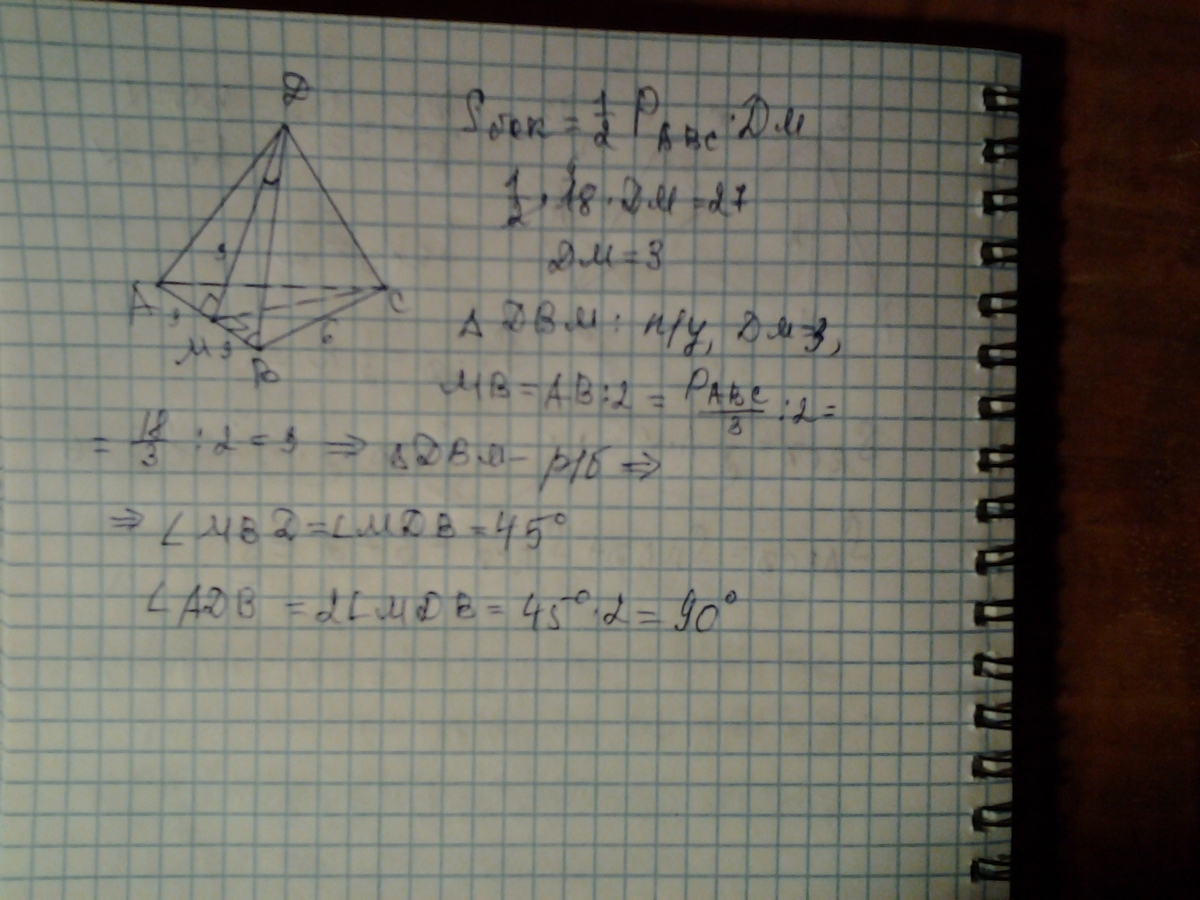 D
A
C
B
M
3
3
3
6
Sбок = 1/2 P_ABC · DM
1/2 · 18 · DM = 27
DM = 3
Δ DBM: п/у, DM=3,
MB = AB:2 = P_ABC/3 :2 =
= 18/3 : 2 = 3 ⇒ ΔDBM – р/б ⇒
⇒ ∠MBD = ∠MDB = 45°
∠ADB = 2∠MDB = 45° · 2 = 90°